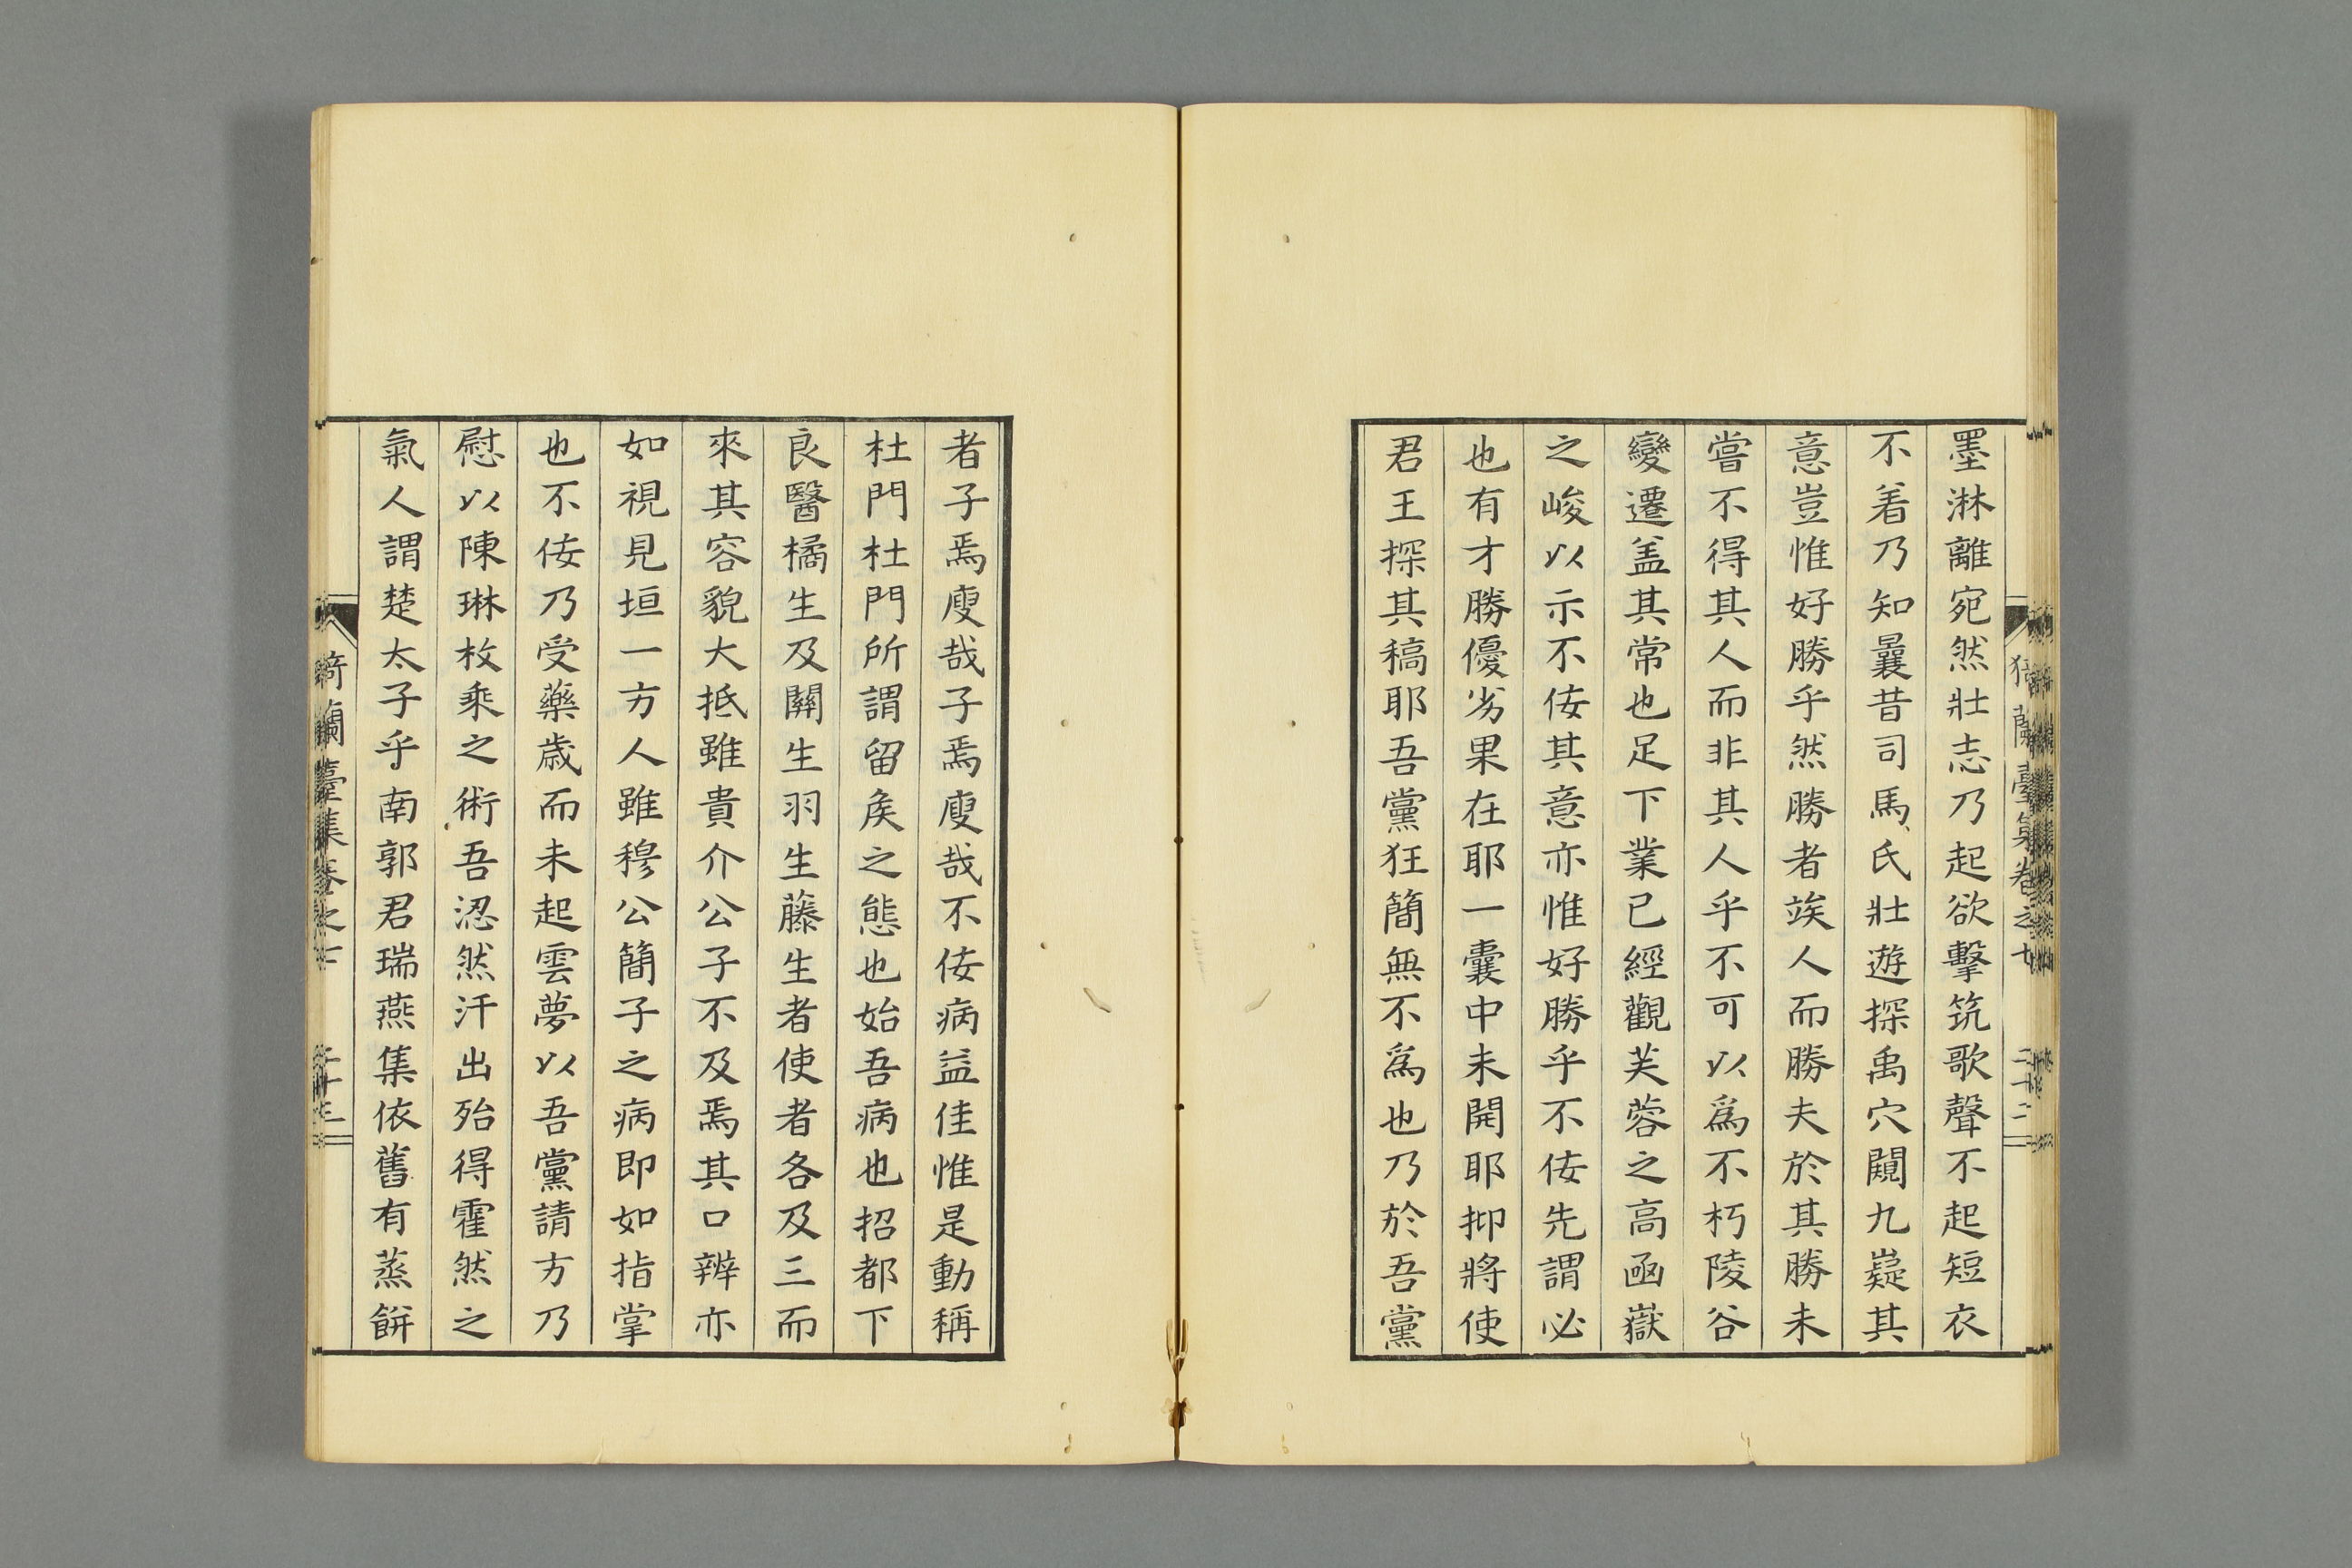 墨淋離宛然壯志乃起欲擊筑歌聲不起短衣
不着乃知曩昔司馬氏壯遊探禹穴闚九嶷其
意豈惟好勝乎然勝者竢人而勝夫於其勝未
嘗不得其人而非其人乎不可以爲不朽陵谷
變遷盖其常也足下業已經觀芙蓉之高函嶽
之峻以示不佞其意亦惟好勝乎不佞先謂必
也有才勝優劣果在耶一囊中未開耶抑將使
君王探其稿耶吾黨狂簡無不爲也乃於吾黨
者子焉廋哉子焉廋哉不佞病益佳惟是動稱
杜門杜門所謂留矦之態也始吾病也招都下
良醫橘生及關生羽生藤生者使者各及三而
來其容貌大抵雖貴介公子不及焉其口辨亦
如視見垣一方人雖穆公簡子之病即如指掌
也不佞乃受藥歲而未起雲夢以吾黨請方乃
慰以陳琳枚乘之術吾涊然汗出殆得霍然之
氣人謂楚太子乎南郭君瑞燕集依舊有蒸餅
蘭臺集卷之七
二十二
蘭臺集卷之七